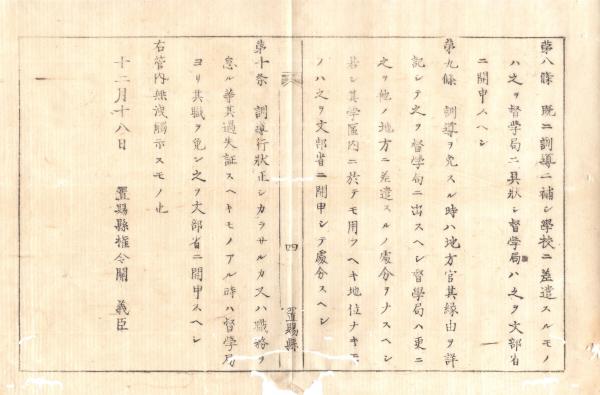 第八條　既ニ訓導ニ補シ學校ニ差遣スルモノ
ハ之ヲ督學局ニ具狀シ督學局ハ之ヲ文部省
ニ開申スヘシ
第九條　訓導ヲ免スル時ハ地方官其縁由ヲ詳
記シテ之ヲ督學局ニ出スヘシ督學局ハ更ニ
之ヲ他ノ地方ニ差遣スルノ處分ヲナスヘシ
若シ其学區内ニ於テモ用フヘキ地位ナキモ
ノハ之ヲ文部省ニ開申シテ處分スヘシ
四
置賜縣
第十条　訓導行狀正シカラサルカ又ハ職務ヲ
怠ル等其過失証スヘキモノアル時ハ督學局
ヨリ其職ヲ免シ之ヲ文部省ニ開申スヘシ
右管内無洩觸示スモノ也
十二月十八日　置賜縣権令關　義臣